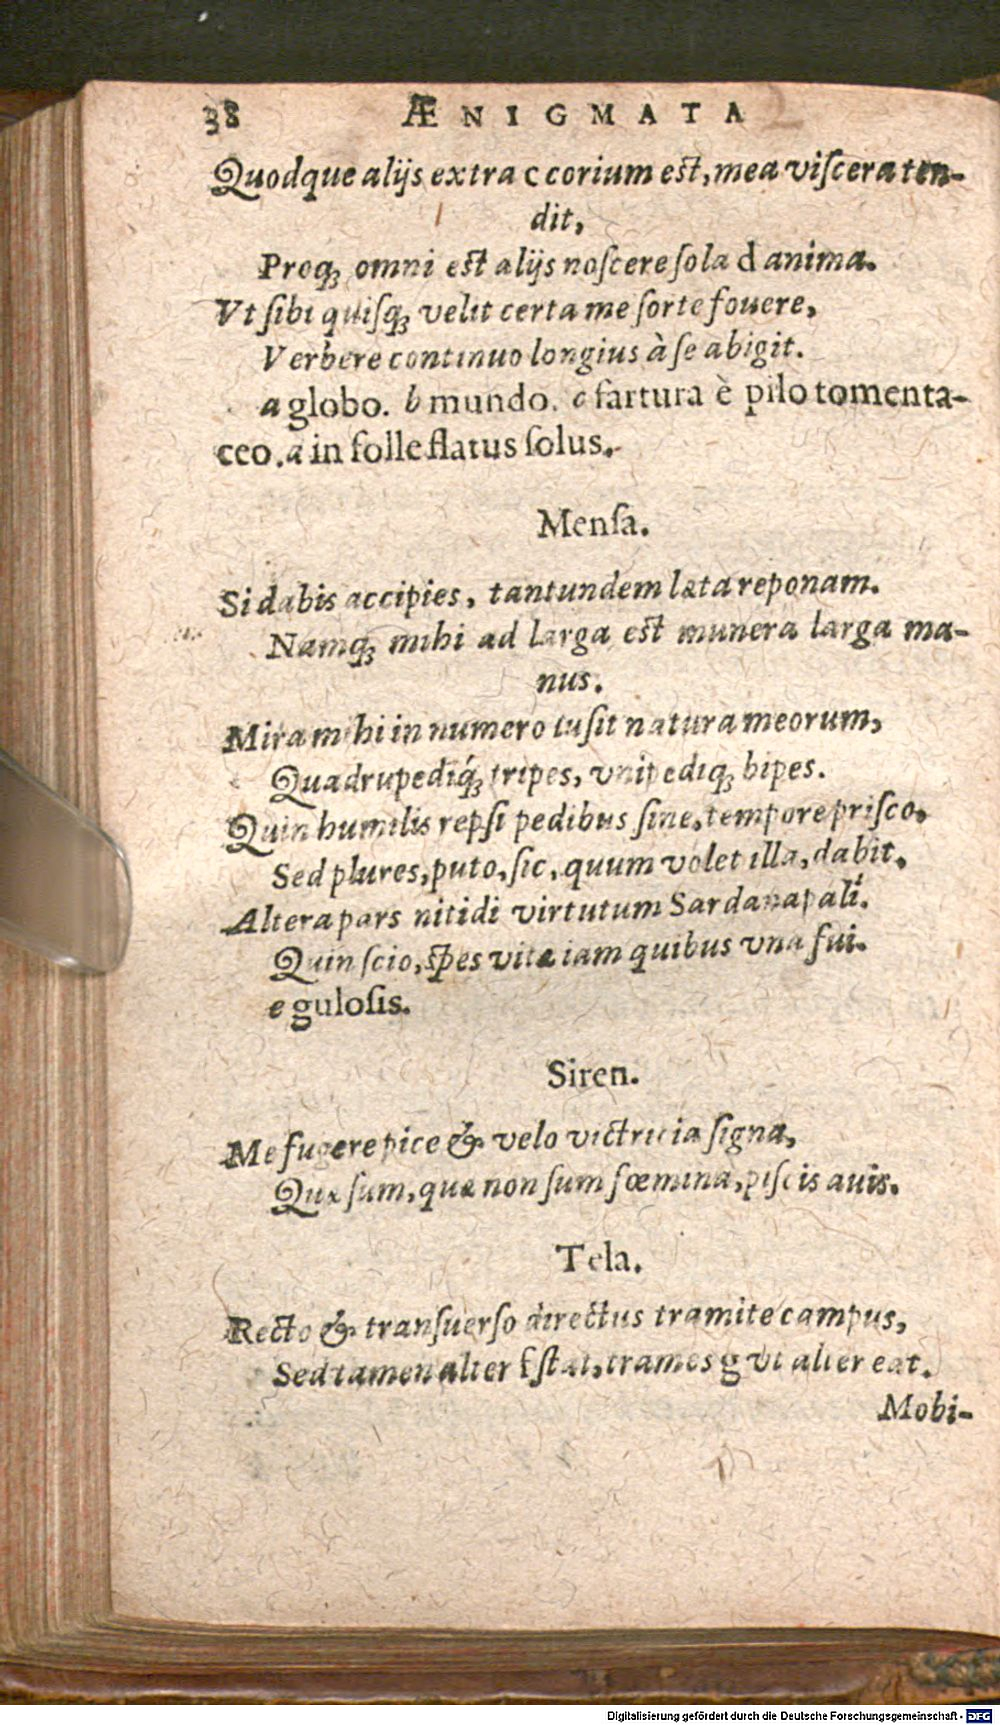 38 ÆNIGMATA
Quodque alijs extra c corium est, mea viſcera ten-
dit,
Proq; omni est alijs noſcere ſola d anima.
Vt ſibi quiſq; velit certa me ſorte fouere,
Verbere continuo longius à ſe abigit.
a globo. b mundo. c fartura è pilo tomenta-
ceo. a in folle flatus ſolus.
Menſa.
Si dabis accipies, tantundem læta reponam.
Namq; mihi ad larga est munera larga ma-
nus.
Mira mihi in numero luſit natura meorum,
Quadrupediq́; tripes, vnipediq; bipes.
Quin humilis repſi pedibus ſine, tempore priſco.
Sed plures, puto, ſic, quum volet illa, dabit.
Altera pars nitidi virtutum Sardanapali.
Quin ſcio, ſpes vitæ iam quibus vna fui.
e guloſis.
Siren.
Me fugere pice & velo victricia ſigna,
Quæ ſum, quæ non ſum fœmina, piſcis auis.
Tela.
Recto & tranſuerſo directus tramite campus,
Sed tamen alter f ſtat, trames g vt alter eat.
Mobi-
Digitalisierung gefördert durch die Deutsche Forschungsgemeinschaft - DFG